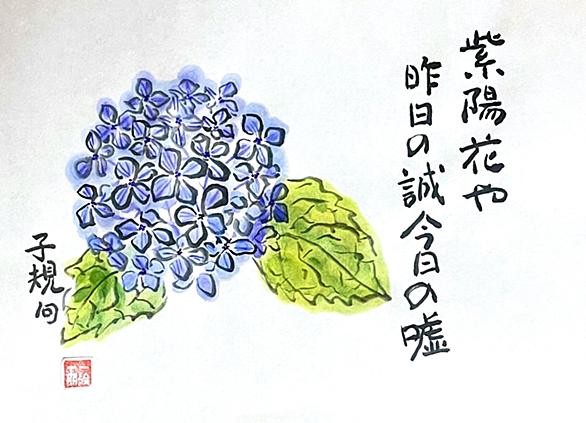 紫陽花や
昨日の誠今日の嘘
子規句